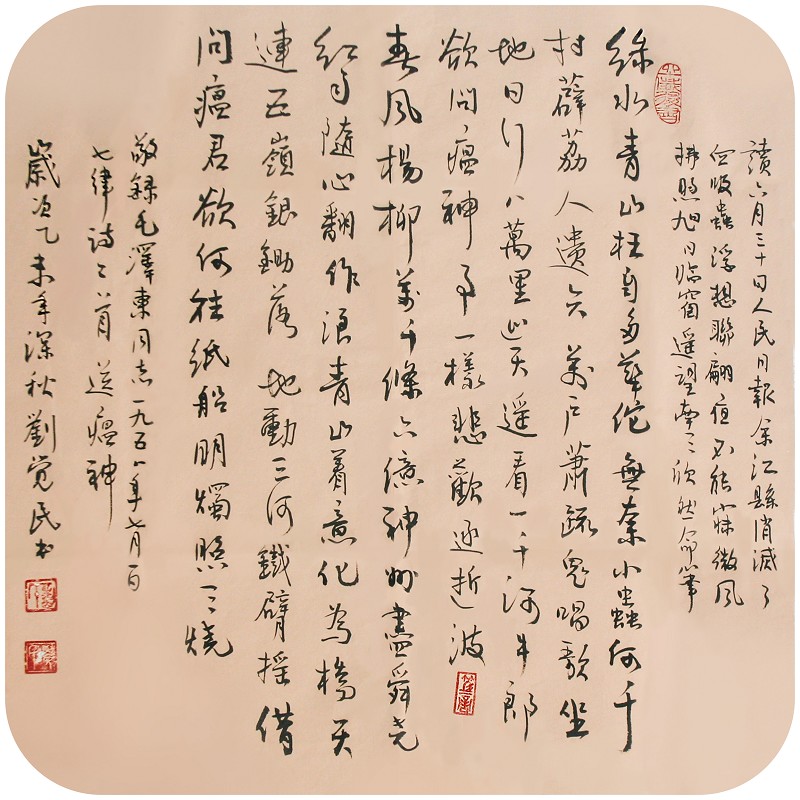 讀六月三十日人民日報余江縣消滅了
血吸蟲浮想聯翩夜不能寐微風
拂煦旭日臨窗遥望南天欣然命筆
綠水青山枉自多華佗無奈小蟲何千
村薜荔人遺矢萬户蕭疏鬼唱歌坐
地日行八萬里巡天遥看一千河牛郎
欲問瘟神事一樣悲歡逐逝波
春風楊柳萬千條六億神州盡舜尧
紅雨隨心翻作浪青山着意化為橋天
連五嶺銀鋤落地動三河鐵臂摇借
問瘟君欲何往紙船明燭照天燒
敬錄毛澤東同志一九五八年七月一日
七律詩二首送瘟神
歲次乙未年深秋劉觉民書